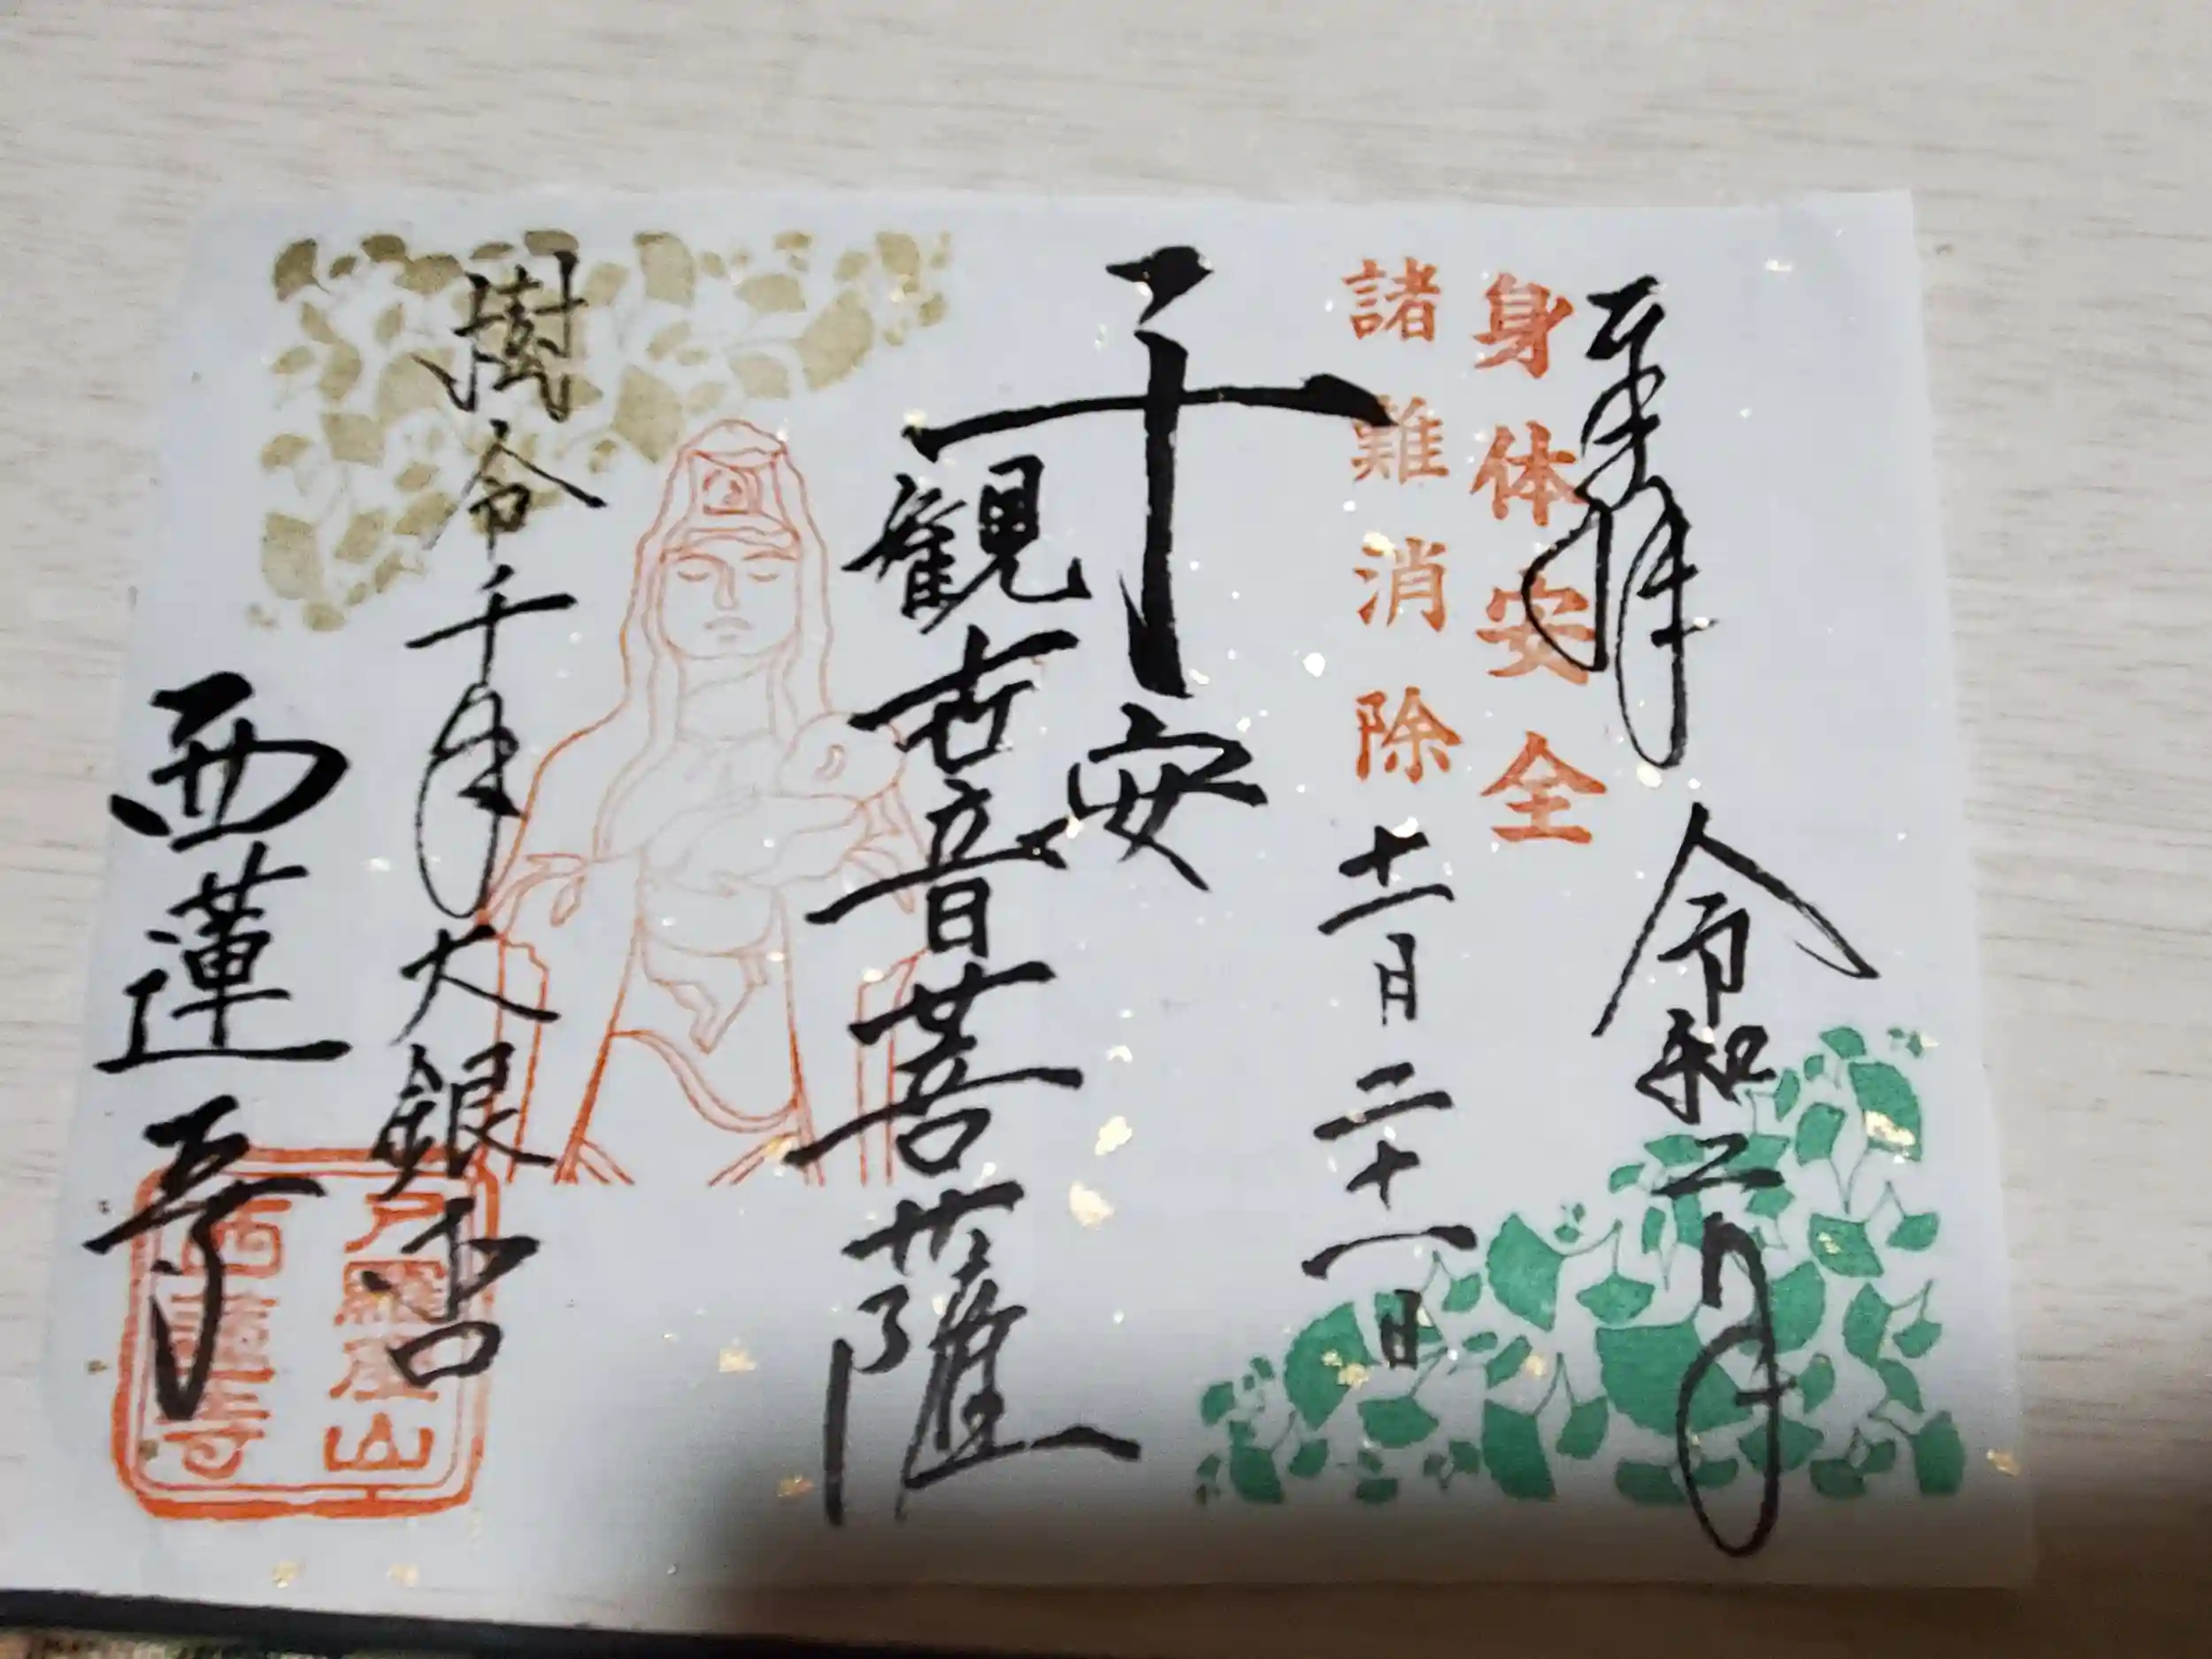 奉拝
令和二年
身体安全
諸難消除
十一月二十一日
子安
観世音菩薩
樹令千年大銀杏
西蓮寺
山
西蓮寺